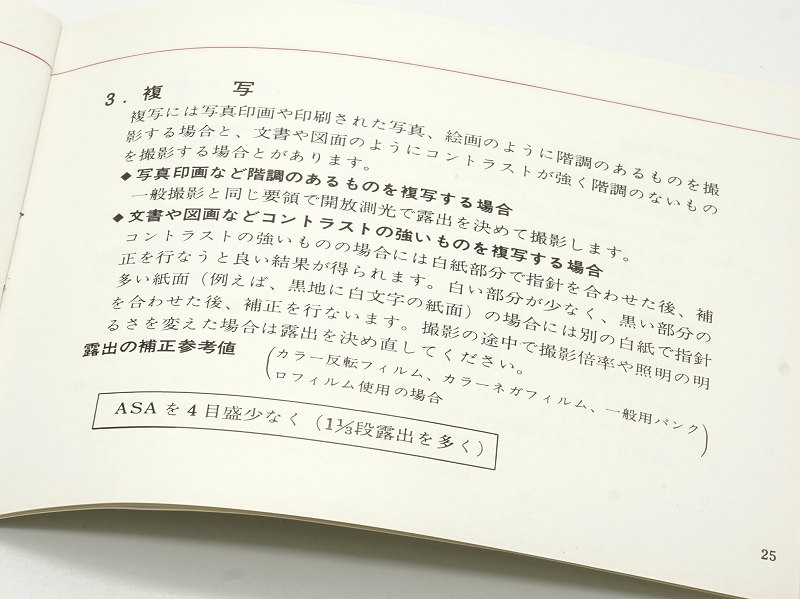 3. 複　写
複写には写真印画や印刷された写真、絵画のように階調のあるものを撮
影する場合と、文書や図面のようにコントラストが強く階調のないもの
を撮影する場合とがあります。
◆写真印画など階調のあるものを複写する場合
一般撮影と同じ要領で開放測光で露出を決めて撮影します。
◆文書や図画などコントラストの強いものを複写する場合
コントラストの強いものの場合には白紙部分で指針を合わせた後、補
正を行なうと良い結果が得られます。白い部分が少なく、黒い部分の
多い紙面（例えば、黒地に白文字の紙面）の場合には別の白紙で指針
を合わせた後、補正を行ないます。撮影の途中で撮影倍率や照明の明
るさを変えた場合は露出を決め直してください。
露出の補正参考値（カラー反転フィルム、カラーネガフィルム、一般用パンク
ロフィルム使用の場合）
ASAを4目盛少なく（1⅓段露出を多く）
25